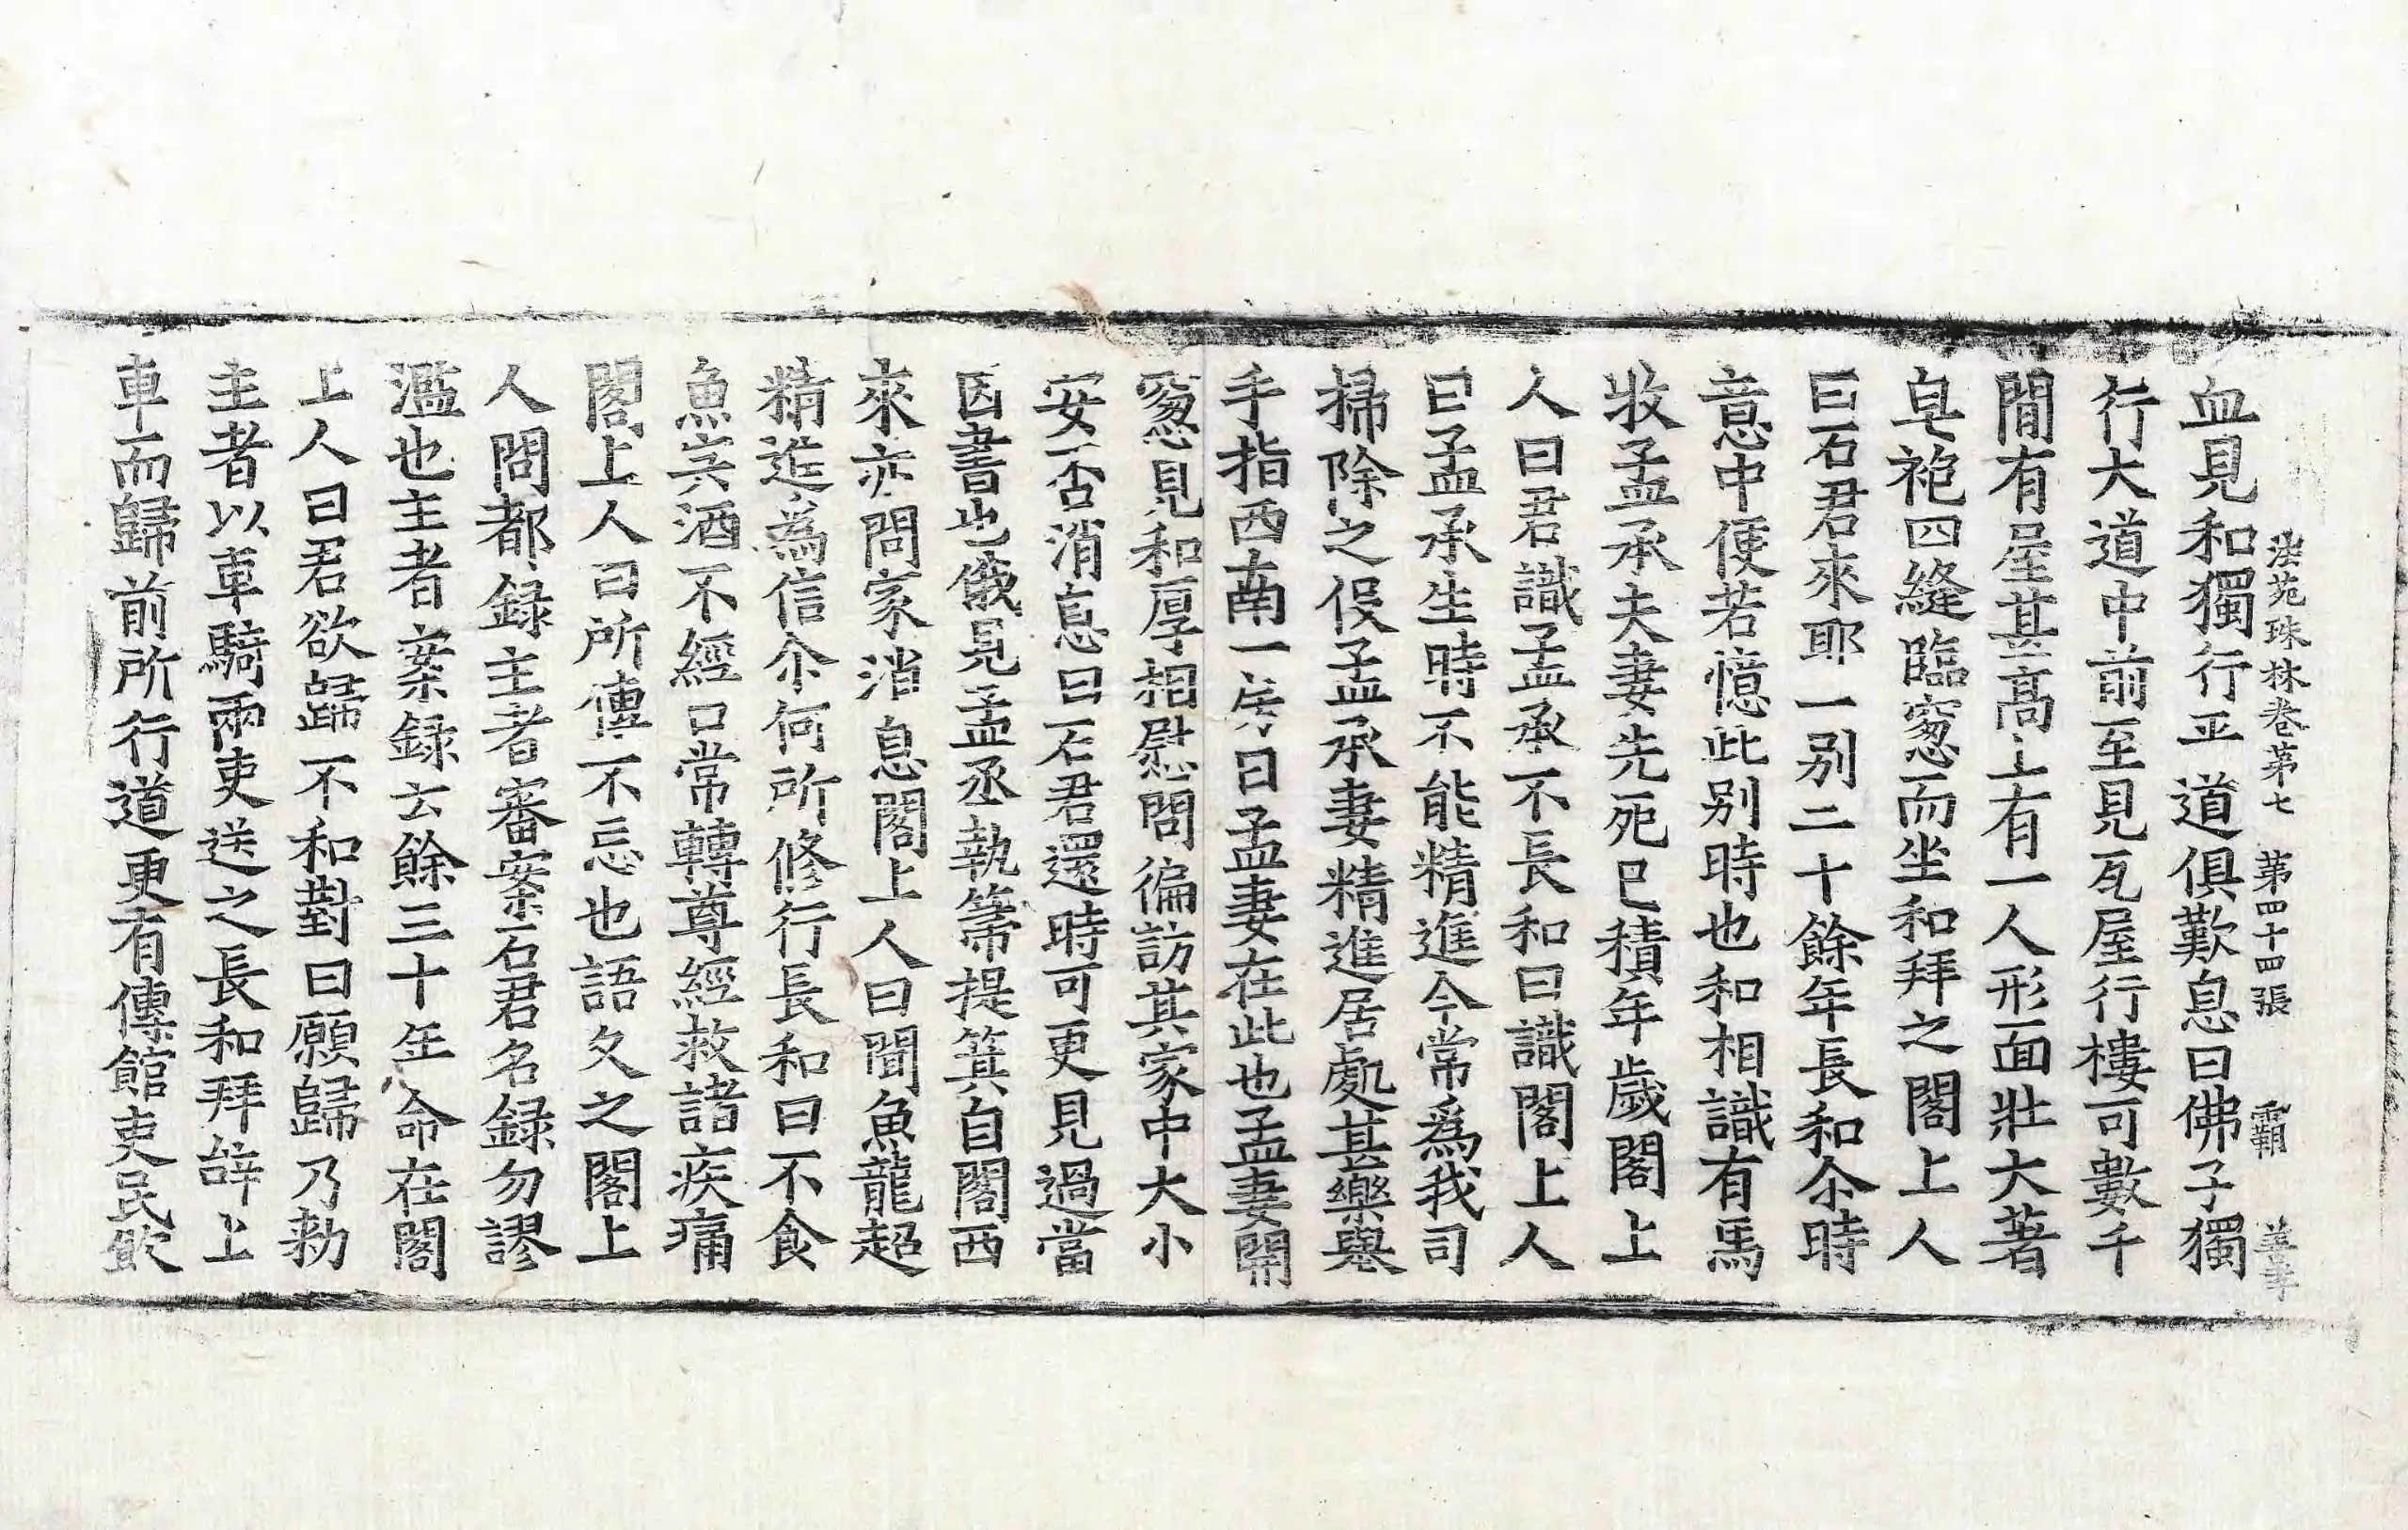 法苑珠林卷第七　第四十四張　霸
血見和獨行平道俱歎息曰佛子獨
行大道中前至見瓦屋行樓可數千
間有屋甚高上有一人形面壯大著
皁袍四縫臨窓而坐和拜之閣上人
曰石君來耶一别二十餘年長和尒時
意中便若憶此别時也和相識有馬
收孟承夫妻先死已積年歲閣上
人曰君識孟承不長和曰識閣上人
曰孟承生時不能精進今常爲我司
掃除之役孟承妻精進居處甚樂舉
手指西南一房曰孟妻在此也孟妻開
窓見和厚相慰問徧訪其家中大小
安否消息曰石君還時可更見過當
因書也俄見孟丞執箒提箕自閣西
來亦問家消息閣上人曰聞魚龍超
精進爲信尒何所修行長和曰不食
魚宍酒不經口常轉尊經救諸疾痛
閣上人曰所傳不忘也語久之閣上
人問都録主者審案石君名録勿謬
濫也主者案録云餘三十年命在閣
上人曰君欲歸不和對曰願歸乃勑
主者以車騎兩吏送之長和拜辝上
車而歸前所行道更有傳館吏民飲